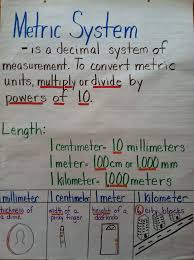 Metric System
- is a decimal system of
measurement. To convert metric
units, multiply or divide by
powers of 10.
Length:
1 centimeter = 10 millimeters
1 meter = 100 cm or 1000 mm
1 kilometer = 1000 meters
1 millimeter
thickness of
a dime
1 centimeter
width of a
pinky finger
1 meter
height of a
doorknob
1 kilometer
6 city blocks